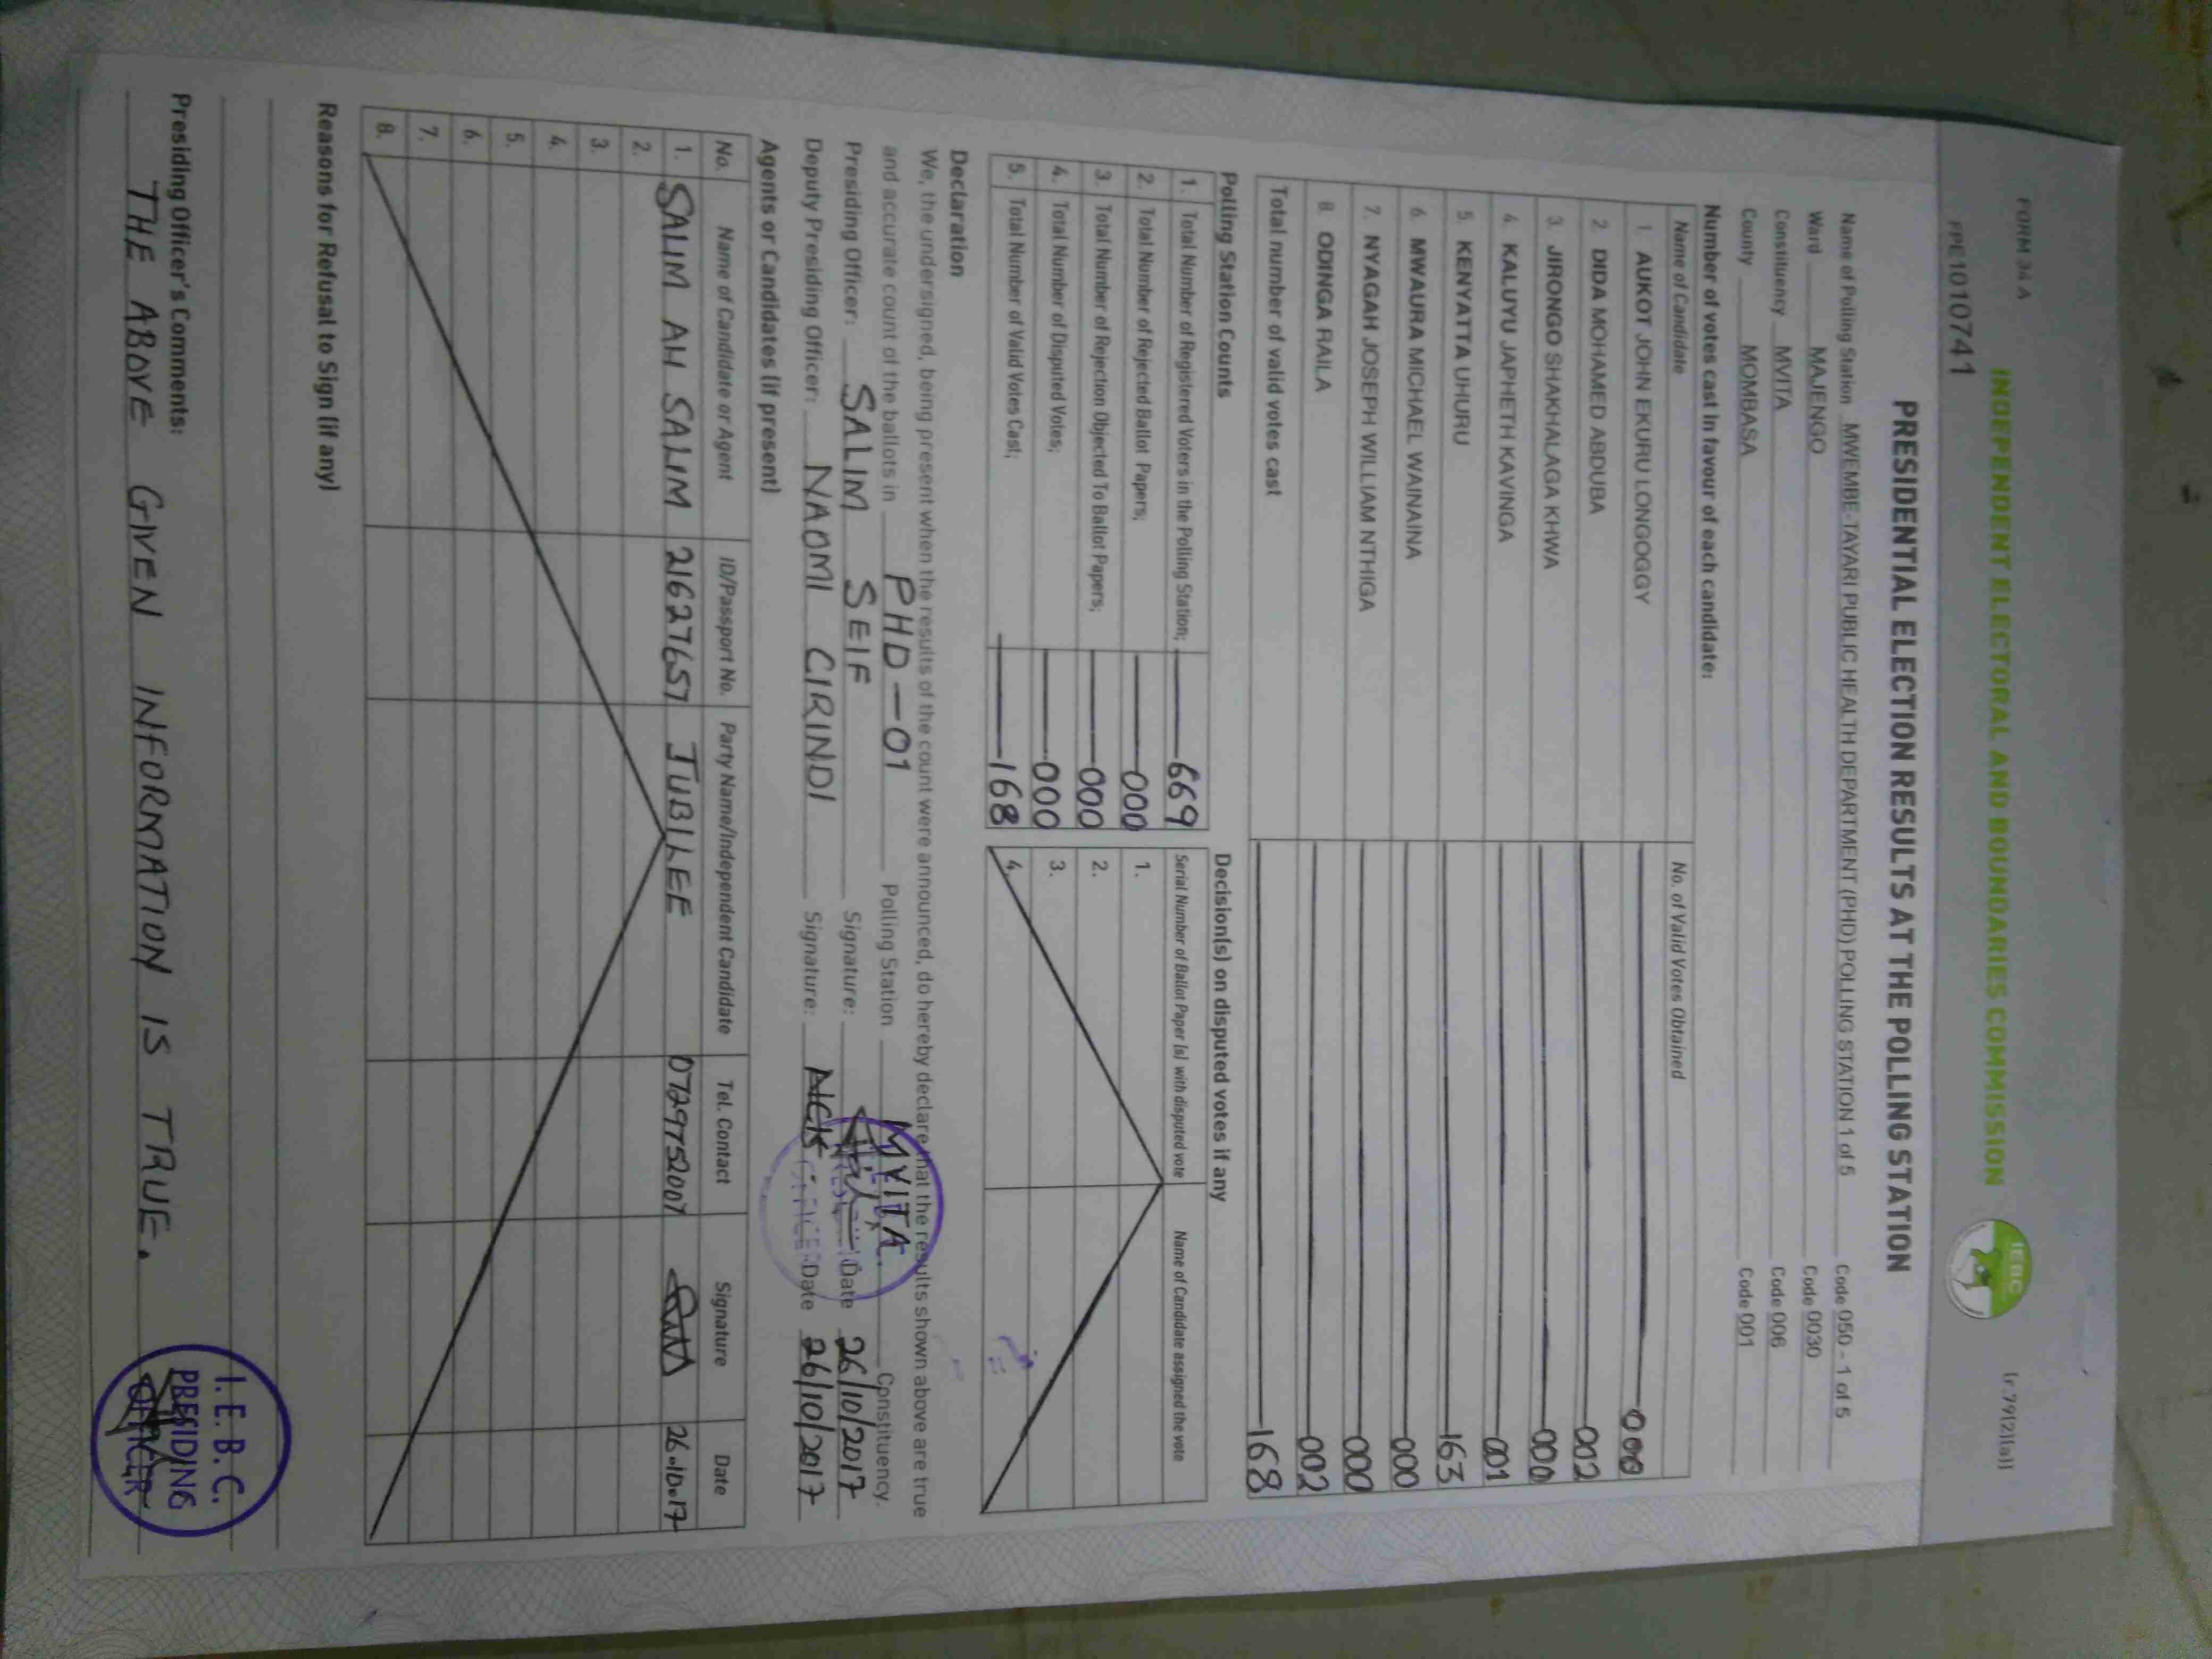 FORM 34 A
INDEPENDENT ELECTORAL AND BOUNDARIES COMMISSION
IEBC
(r.79(2)(a))
FPE1010741
PRESIDENTIAL ELECTION RESULTS AT THE POLLING STATION
Name of Polling Station MWEMBE-TAYARI PUBLIC HEALTH DEPARTMENT (PHD) POLLING STATION 1 of 5 Code 050 - 1 of 5
Ward MAJENGO Code 0030
Constituency MVITA Code 006
County MOMBASA Code 001
Number of votes cast in favour of each candidate:
Name of Candidate No. of Valid Votes Obtained
1. AUKOT JOHN EKURU LONGOGGY 000
2. DIDA MOHAMED ABDUBA 002
3. JIRONGO SHAKHALAGA KHWA 000
4. KALUYU JAPHETH KAVINGA 001
5. KENYATTA UHURU 163
6. MWAURA MICHAEL WAINAINA 000
7. NYAGAH JOSEPH WILLIAM NTHIGA 000
8. ODINGA RAILA 002
Total number of valid votes cast 168
Polling Station Counts
1. Total Number of Registered Voters in the Polling Station; 669
2. Total Number of Rejected Ballot Papers; 000
3. Total Number of Rejection Objected To Ballot Papers; 000
4. Total Number of Disputed Votes; 000
5. Total Number of Valid Votes Cast; 168
Decision(s) on disputed votes if any
Serial Number of Ballot Paper (s) with disputed vote Name of Candidate assigned the vote
1.
2.
3.
4.
Declaration
We, the undersigned, being present when the results of the count were announced, do hereby declare that the results shown above are true
and accurate count of the ballots in PHD-01 Polling Station MVITA. Constituency.
Presiding Officer: SALIM SEIF Signature: Date 26/10/2017
Deputy Presiding Officer: NAOMI CIRINDI Signature: Date 26/10/2017
Agents or Candidates (if present)
No. Name of Candidate or Agent ID/Passport No. Party Name/Independent Candidate Tel. Contact Signature Date
1. SALIM AH SALIM 21627657 JUBILEE 0729752007 26.10.17
2.
3.
4.
5.
6.
7.
8.
Reasons for Refusal to Sign (if any)
Presiding Officer's Comments:
THE ABOVE GIVEN INFORMATION IS TRUE.
I.E.B.C.
PRESIDING
OFFICER